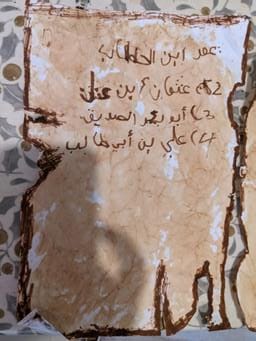 عمر ابن الخطاب
2) عثمان ابن عفان
3) أبو بكر الصديق
4) علي بن أبي طالب